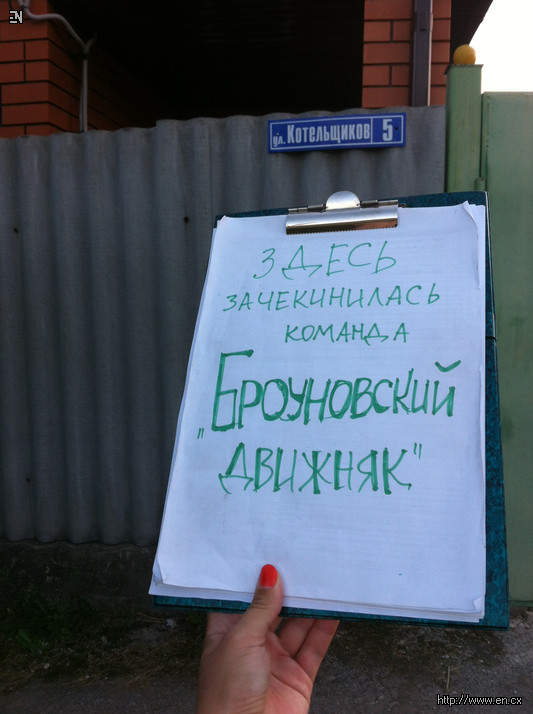 EN
ул. Котельщиков 5
ЗДЕСЬ
ЗАЧЕКИНИЛАСЬ
КОМАНДА
„БРОУНОВСКИЙ
ДВИЖНЯК"
http://www.en.cx